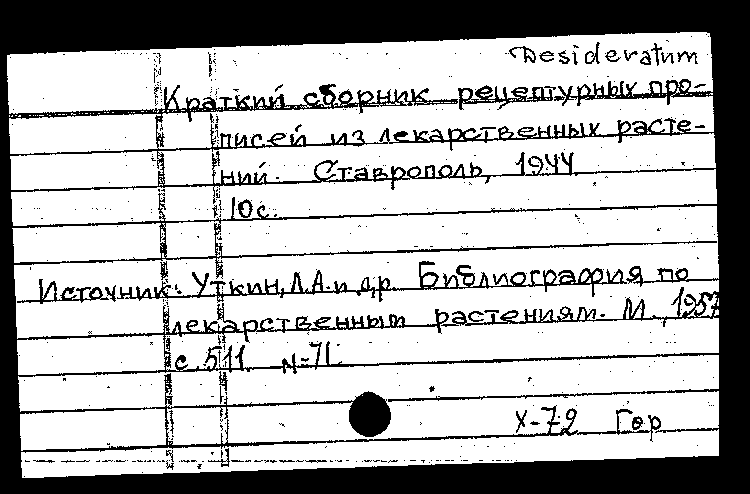 Desideratum
Краткий сборник рецептурных про-
писей из лекарственных расте-
ний. Ставрополь, 1944
10с.
Источник: Уткин, Л.А. и др. Библиография по
лекарственным растениям. М., 1957
с. 511 N-71.
X-72 Гор